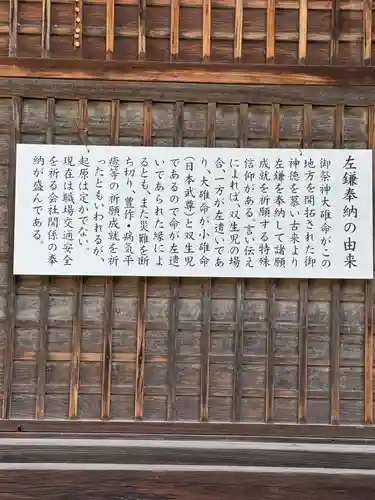 左鎌奉納の由来
御祭神大碓命がこの
地方を開拓された御
神徳を慕い古来より
左鎌を奉納して諸願
成就を祈願する特殊
信仰がある。言い伝え
によれば、双生児の場
合、一方が左遣いであ
り、大碓命が小碓命
(日本武尊)と双生児
であるので命が左遣
いであられた縁によ
るとも、また災難を断
ち切り、豊作・病気平
癒等の祈願成就を祈
ったともいわれるが、
起原は定かでない。
現在は職場交通安全
を祈る会社関係の奉
納が盛んである。